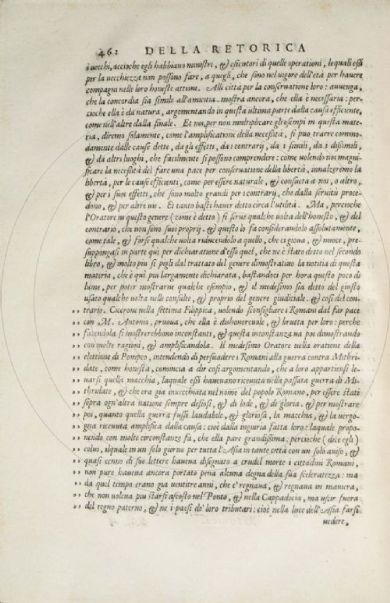 462 DELLA RETORICA
i vecchi, accioche egli habbiano ministri, & essecutori di quelle operationi, le quali essi
per la vecchiezza non possino fare, a quegli, che sono nel vigore dell'età per havere
compagni nelle loro honeste attioni. Alle città per la conservatione loro: avenga,
che la concordia sia simile all'amicitia. mostra ancora, che ella è necessaria: per-
cioche ella è da natura, argomentando in questa ultima parte dalla causa efficiente,
come nell'altre dalla finale. Et noi, per non moltiplicare gli essempi in questa ma-
teria, diremo solamente, come l'amplificatione della necessità, si può trarre commo-
damente dalle cause dette, da gli effetti, da i contrarij, da i simili, da i dissimili,
& da altri luoghi, che facilmente si possono comprendere: come volendo noi magni-
ficare la necessità del fare una pace per conservatione della libertà, innalzeremo la
libertà, per le cause efficienti, come per essere naturale, & consueta a noi, o altro,
& per i suoi effetti, che sono molto grandi per i contrarij, che dalla servitù proce-
dono, & per altri vie. Et tanto basti haver detto circa l'utilità. Ma, perche
l'Oratore in questo genere (come è detto) si serve qualche volta dell'honesto, & del
contrario, che non sono suoi proprij. & questo lo fa considerandolo assolutamente,
come tale, & forse qualche volta riducendolo a quello, che ci giova, & nuoce, pre-
suppongasi in parte qui per dichiaratione d'essi quel, che ne è stato detto nel secondo
libro, & molto più si pigli dal trattato del genere dimostrativo la notitia di questa
materia, che è qui più largamente dichiarata, bastandoci per hora questo poco di
lume, per poter mostrarne qualche essempio. & il medesimo sia detto del giusto
usato qualche volta nelle consulte, & proprio del genere giudiciale. & così del con-
,, trario. Cicerone nella settima Filippica, volendo sconsigliare i Romani dal far pace
,, con M. Antonio, pruova, che ella è dishonorevole, & brutta per loro: perche
,, facendola si mostrerebbono inconstanti, & questa inconstanza ne poi dimostrando
,, con molte ragioni, & amplificandola. Il medesimo Oratore nella oratione della
,, elettione di Pompeo, intendendo di persuadere i Romani alla guerra contra Mithri-
,, date, come honesta, comincia a dir così argomentando, che a loro appartiensi le-
,, narsi quella macchia, laquale essi havevano ricevuta nella passata guerra di Mi-
,, thridate, & che era già invecchiata nel nome del popolo Romano, per essere stati
,, sopra ogn'altra natione sempre desiosi, & di lode, & di gloria, & per mostrare
,, poi, quanto quella guerra fusse laudabile, & gloriosa, la macchia, & la vergo-
,, gna ricevuta amplifica dalla causa: cioè dalla ingiuria fatta loro: laquale propo-
,, nendo con molte circonstanze fa, che ella pare grandissima; percioche (dice egli)
,, colui, ilquale in un solo giorno per tutta l'Asia in tante città con un solo aviso, &
,, quasi cenno di sue lettere haveva disegnato a crudel morte i cittadini Romani,
,, non pure haveva ancora portato pena alcuna degna della sua sceleratezza: ma
,, da quel tempo erano già ventitre anni, che e' regnava, & regnava in maniera,
,, che non voleva più starsi ascosto nel Ponto, & nella Cappadocia, ma uscir fuora
,, del regno paterno, & ne i paesi de' loro tributarij: cioè nella luce dell'Asia farsi
vedere,